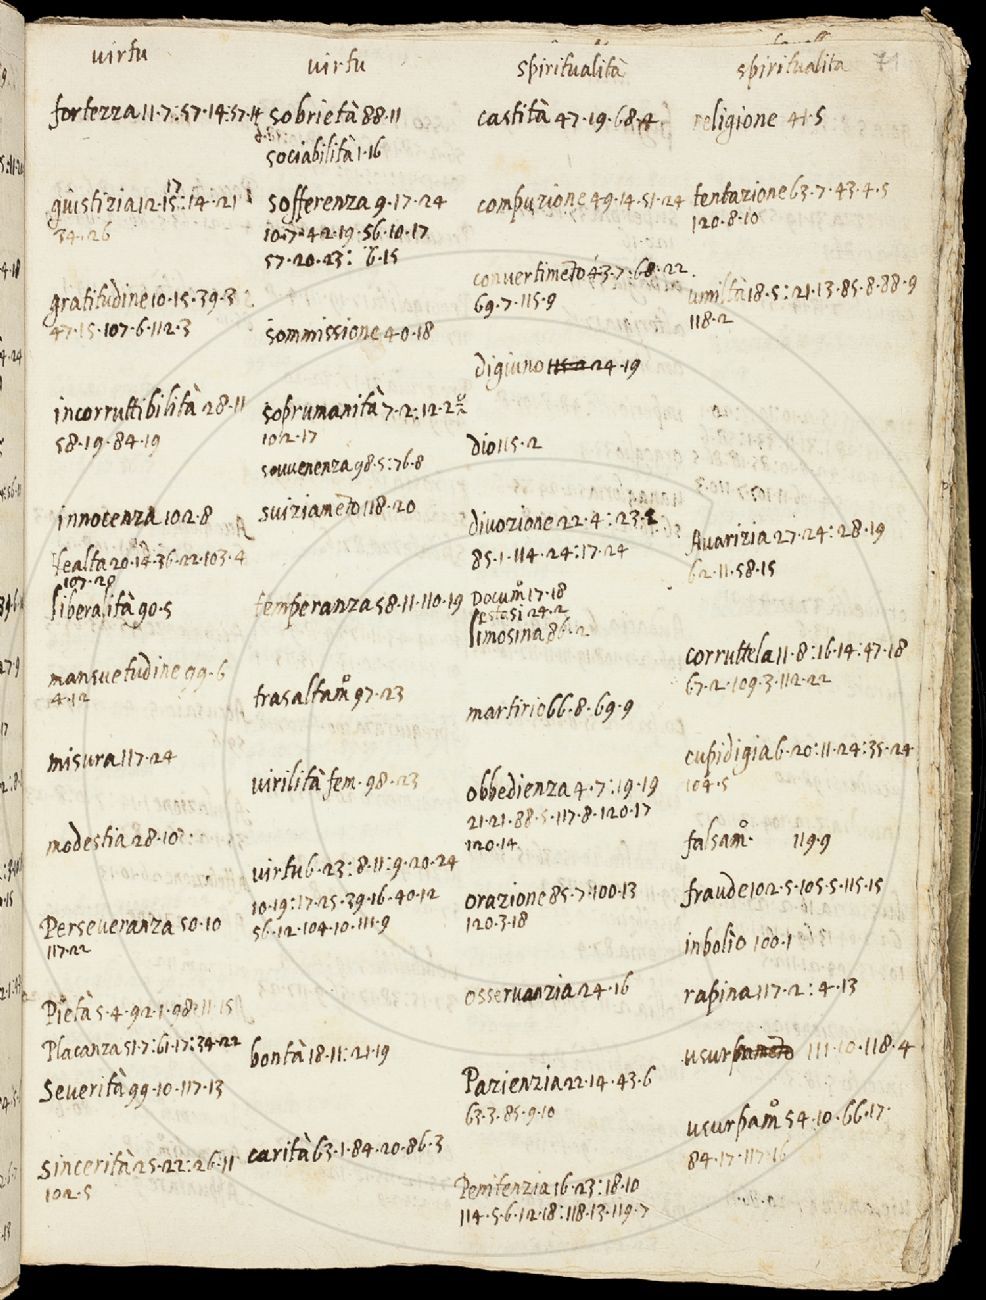 virtu
fortezza 11·7:57·14:57·14
giustizia 12·15:14·21
17
34·26
gratitudine 10·15·39·3
47·15·107·6·112·3
incorruttibilità 28·11
58·19·84·19
innocenza 102·8
Lealta 20·14·36·22·103·4
107·20
liberalità 90·5
mansuetudine 99·6
4·12
misura 117·24
modestia 28·10
Perseveranza 50·10
117·22
Pietà 5·4·92·1·98·11·15
Placanza 51·7:61·17:34·22
Severità 99·10·117·13
Sincerità 25·22:26·11
102·5
virtu
sobrietà 88·11
sociabilità 1·16
sofferenza 9·17·24
10·7·42·19·56·10·17
57·20·23: 6·15
sommissione 40·18
soprumanità 7·2:12·2
102·17
souuenenza 98·5:76·8
118·20
temperanza 58·11·110·19
trasaltamo 97·23
virilità fem· 98·23
virtu 6·23:8·11:9·20·24
10·19:17·25·39·16·40·12
56·12·104·10·111·9
bontà 18·11:21·19
carità 63·1·84·20·86·3
spiritualità
castità 47·19·68·4
compunzione 49·14·51·24
convertimeto 43·7·68·22
69·7·115·9
digiuno 115·2 24·19
dio 115·2
divozione 22·4:23·2
85·1·114·24:17·24
Docum 17·18
estasi 24·2
limosina 86·2
martirio 66·8·69·9
obbedienza 4·7:19·19
21·21·88·5·117·8·120·17
120·14
orazione 85·7·100·13
120·3·18
osservanzia 24·16
Pazienzia 22·14·43·6
63·3·85·9·10
Penitenzia 16·23:18·10
114·5·6·12·18:118·13·119·7
spiritualita 71
religione 41·5
tentazione 63·7·43·4·5
120·8·10
umiltà 18·5:21·13·85·8·88·9
118·2
Avarizia 27·24:28·19
62·11·58·15
corruttela 11·8:16·14:47·18
67·2·109·3·112·22
cupidigia 6·20:11·24:35·24
104·5
falsamo· 119·9
fraude 102·5·105·5·115·15
inbolio 100·1
rapina 117·2:4·13
usurpameto 111·10·118·4
usurpamo 54·10·66·17
84·17·117·16